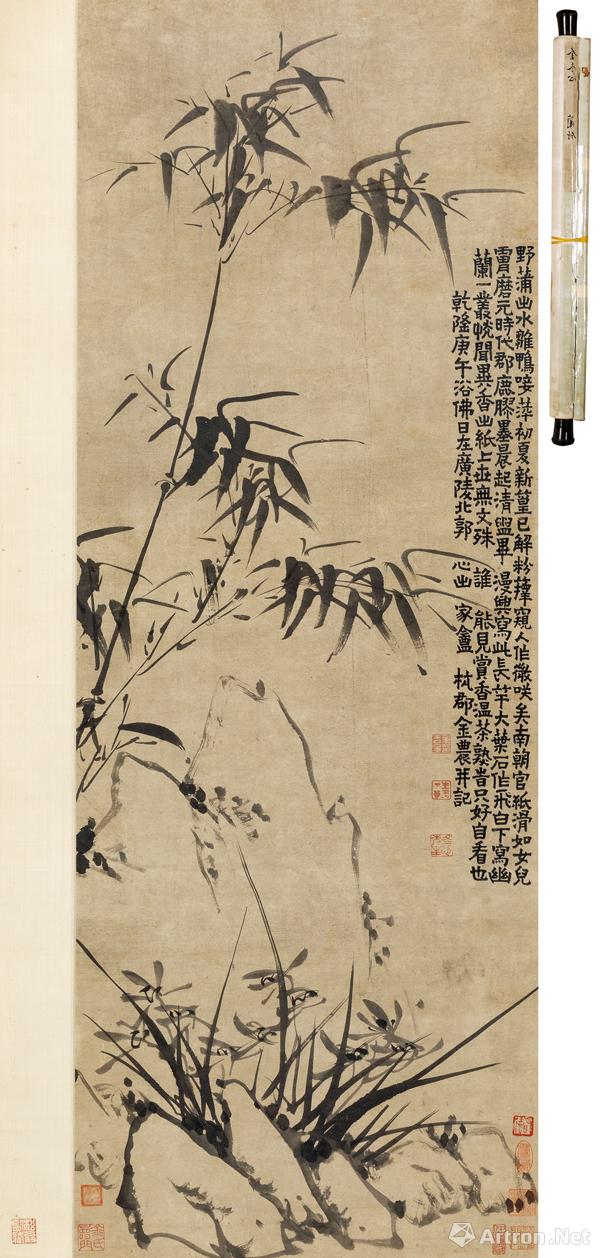 野蒲出水雛鴨唼萍初夏新篁已解粉籜窺人作微咲矣南朝官紙滑如女兒
膚磨元時代郡鹿膠墨晨起清盥畢漫興寫此長竿大葉石作飛白下寫幽
蘭一叢恍聞異香出紙上世無文殊誰能見賞香溫茶熟旹只好自看也
乾隆庚午浴佛日在廣陵北郭心出家盦杭郡金農并記
Artron.Net